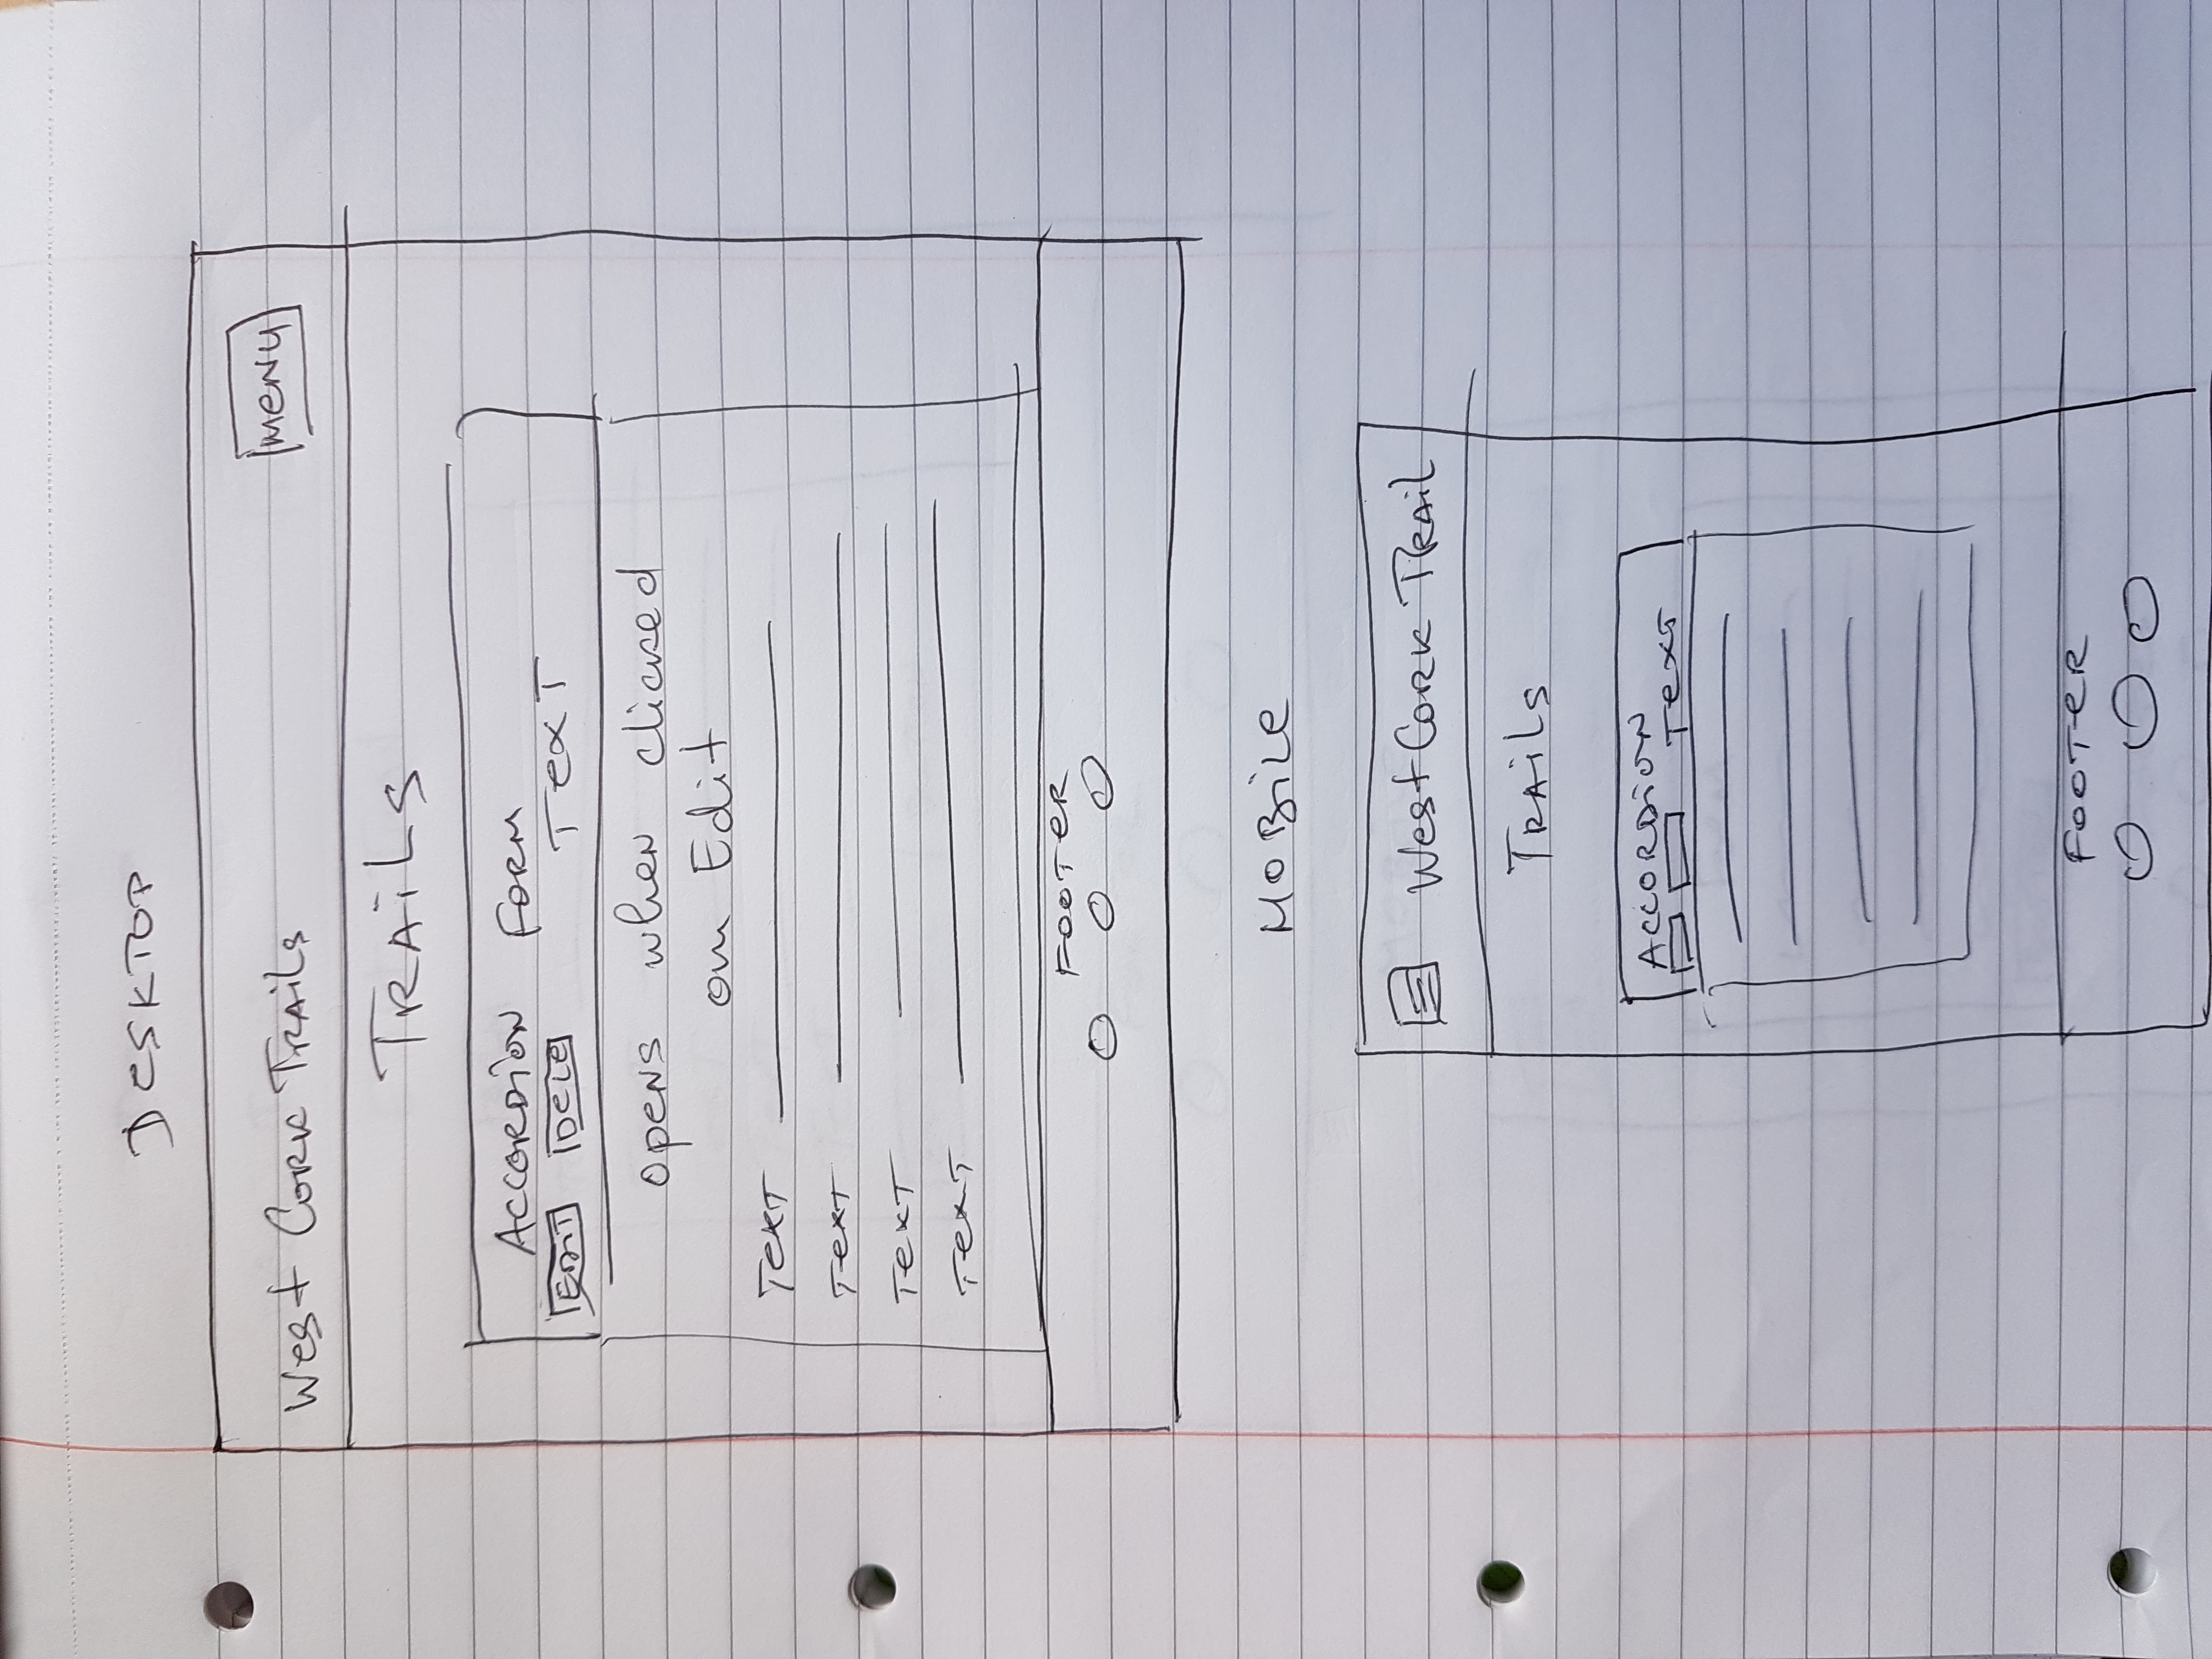 DESKTOP
West Cork Trails
MENU
TRAiLS
ACCORDiON FORM
EDIT DELE TEXT
opens when clicked
on Edit
TEXT
TEXT
TEXT
TEXT
FOOTER
MOBiLE
West Cork Trail
TRAiLS
ACCORDiON
TEXT
FOOTER